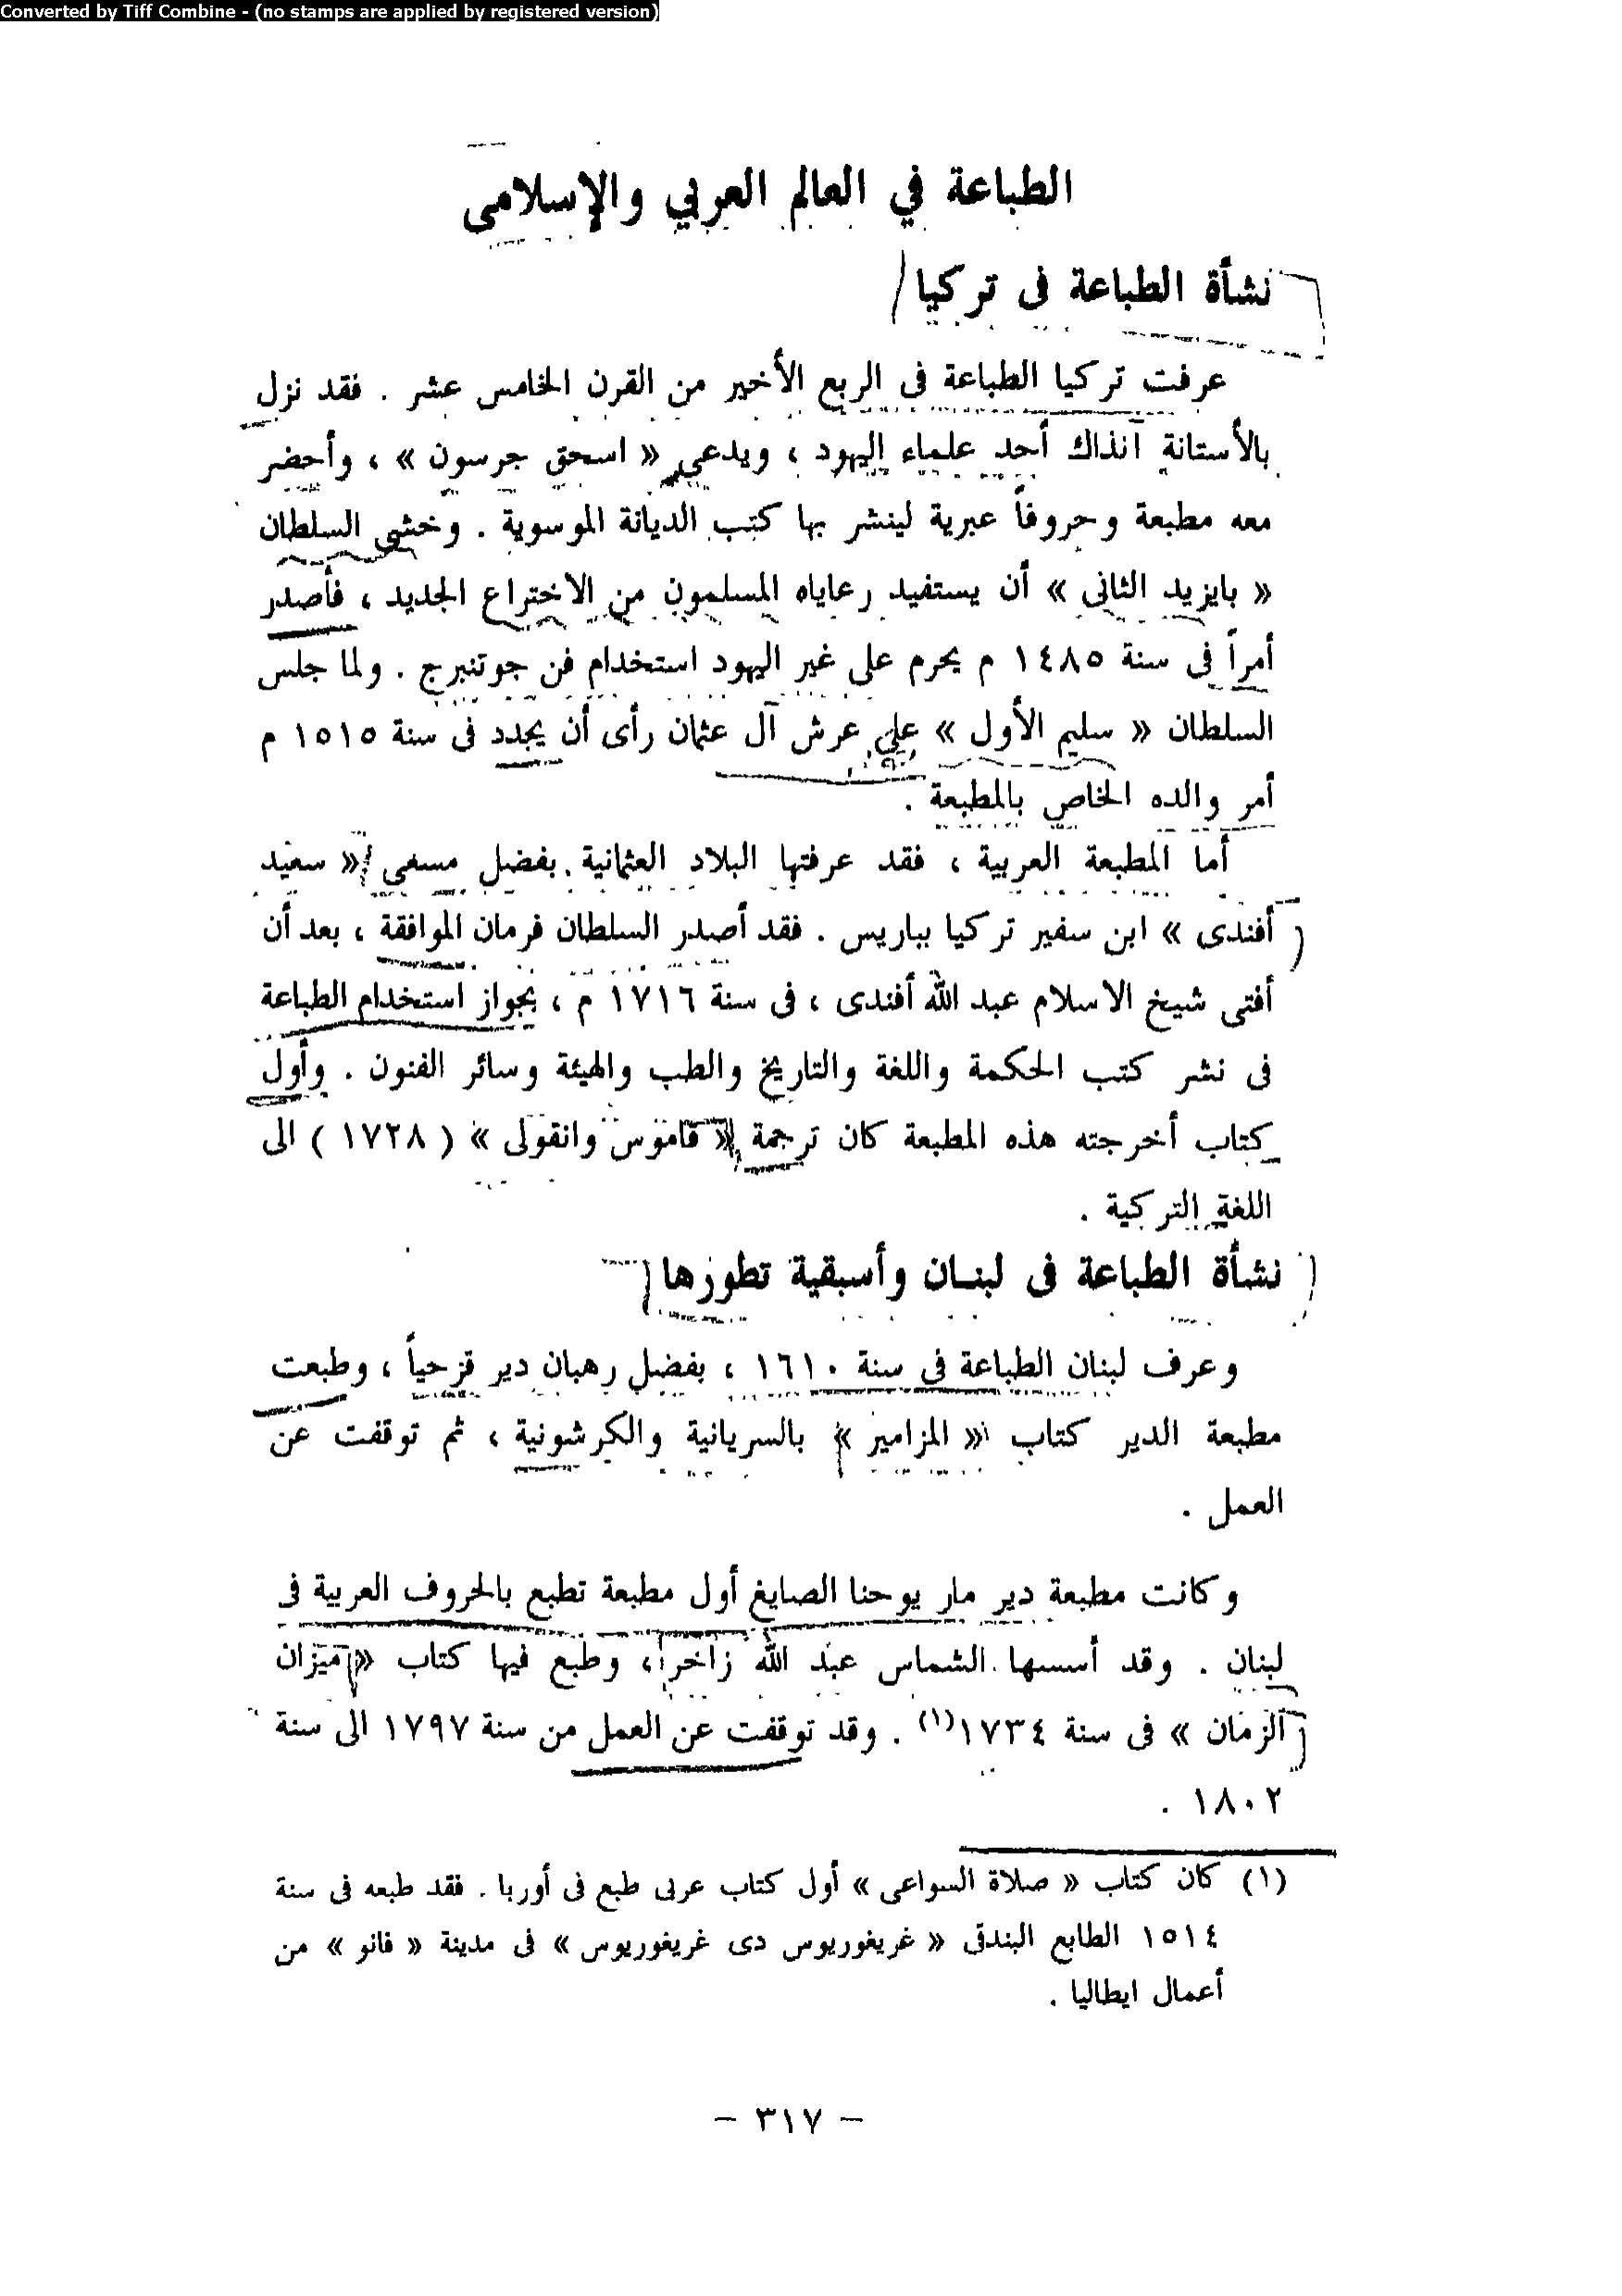 Converted by Tiff Combine - (no stamps are applied by registered version)
الطباعة في العالم العربي والإسلامى
نشأة الطباعة فى تركيا
عرفت تركيا الطباعة فى الربع الأخير من القرن الخامس عشر . فقد نزل
بالأستانة آنذاك أحد علماء اليهود ، ويدعى « اسحق جرسون » ، وأحضر
معه مطبعة وحروفاً عبرية لينشر بها كتب الديانة الموسوية . وخشى السلطان
« بايزيد الثانى » أن يستفيد رعاياه المسلمون من الاختراع الجديد ، فأصدر
أمراً فى سنة ١٤٨٥ م يحرم على غير اليهود استخدام فن جوتنبرج . ولما جلس
السلطان « سليم الأول » على عرش آل عثمان رأى أن يجدد فى سنة ١٥١٥ م
أمر والده الخاص بالمطبعة .
أما المطبعة العربية ، فقد عرفتها البلاد العثمانية بفضل مسعى « سعيد
أفندى » ابن سفير تركيا بباريس . فقد أصدر السلطان فرمان الموافقة ، بعد أن
أفتى شيخ الاسلام عبد الله أفندى ، فى سنة ١٧١٦ م ، بجواز استخدام الطباعة
فى نشر كتب الحكمة واللغة والتاريخ والطب والهيئة وسائر الفنون . وأول
كتاب أخرجته هذه المطبعة كان ترجمة « قاموس وانقولى » ( ١٧٢٨ ) الى
اللغة التركية .
نشأة الطباعة فى لبنان وأسبقية تطورها
وعرف لبنان الطباعة فى سنة ١٦١٠ ، بفضل رهبان دير قزحياً ، وطبعت
مطبعة الدير كتاب « المزامير » بالسريانية والكرشونية ، ثم توقفت عن
العمل .
وكانت مطبعة دير مار يوحنا الصايغ أول مطبعة تطبع بالحروف العربية فى
لبنان . وقد أسسها الشماس عبد الله زاخراً ، وطبع فيها كتاب « ميزان
الزمان » فى سنة ١٧٣٤(١) . وقد توقفت عن العمل من سنة ١٧٩٧ الى سنة
١٨٠٢ .
(١) كان كتاب « صلاة السواعى » أول كتاب عربى طبع فى أوربا . فقد طبعه فى سنة
١٥١٤ الطابع البندقى « غريغوريوس دى غريغوريوس » فى مدينة « فانو » من
أعمال ايطاليا .
– ٣١٧ –